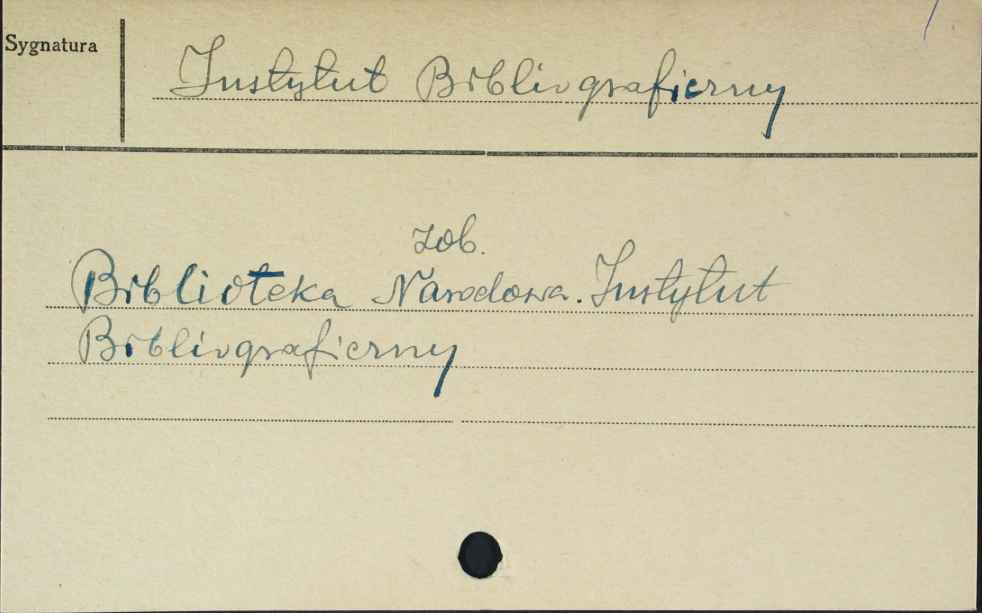 Sygnatura
Instytut Bibliograficzny
zob.
Biblioteka Narodowa. Instytut
Bibliograficzny